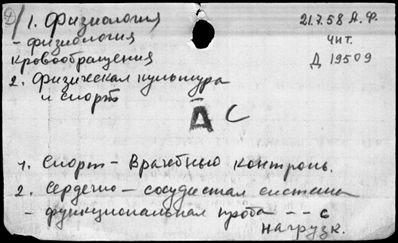 1. Физиология
21.7.58 А.Ф.
- физиология
чит.
кровообращения
Д 19509
2. Физическая культура
и спорт
А С
1. Спорт - Врачебный контроль.
2. Сердечно - сосудистая система
- функциональная проба - - с
нагрузк.